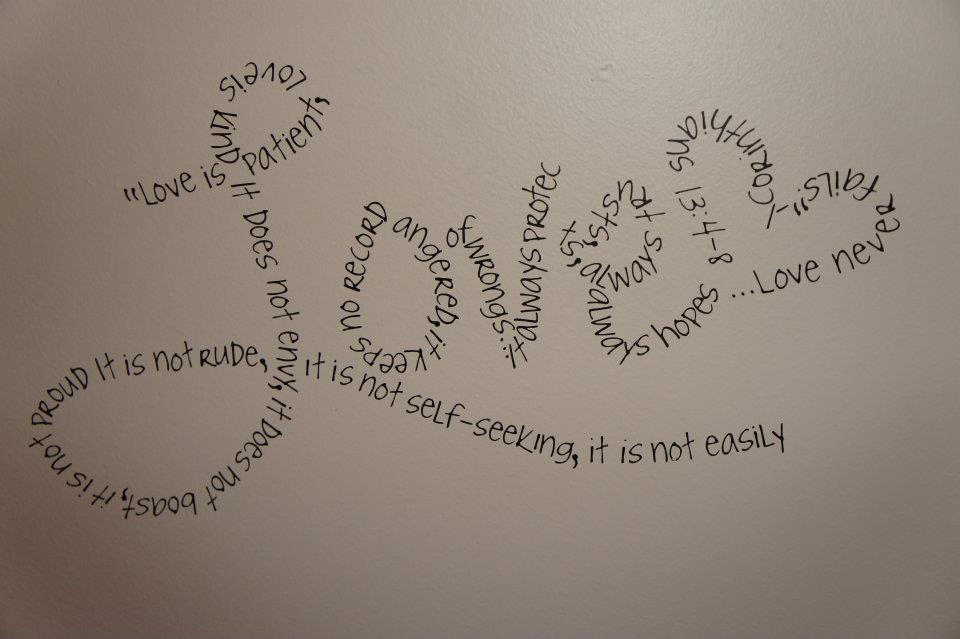 "Love is patient, Love is kind It does not envy, it does not boast, it is not proud It is not rude, it is not self-seeking, it is not easily
angered, it keeps no record
of wrongs: it always protects, always trusts, always hopes ...Love never fails"
-1 Corinthians 13:4-8